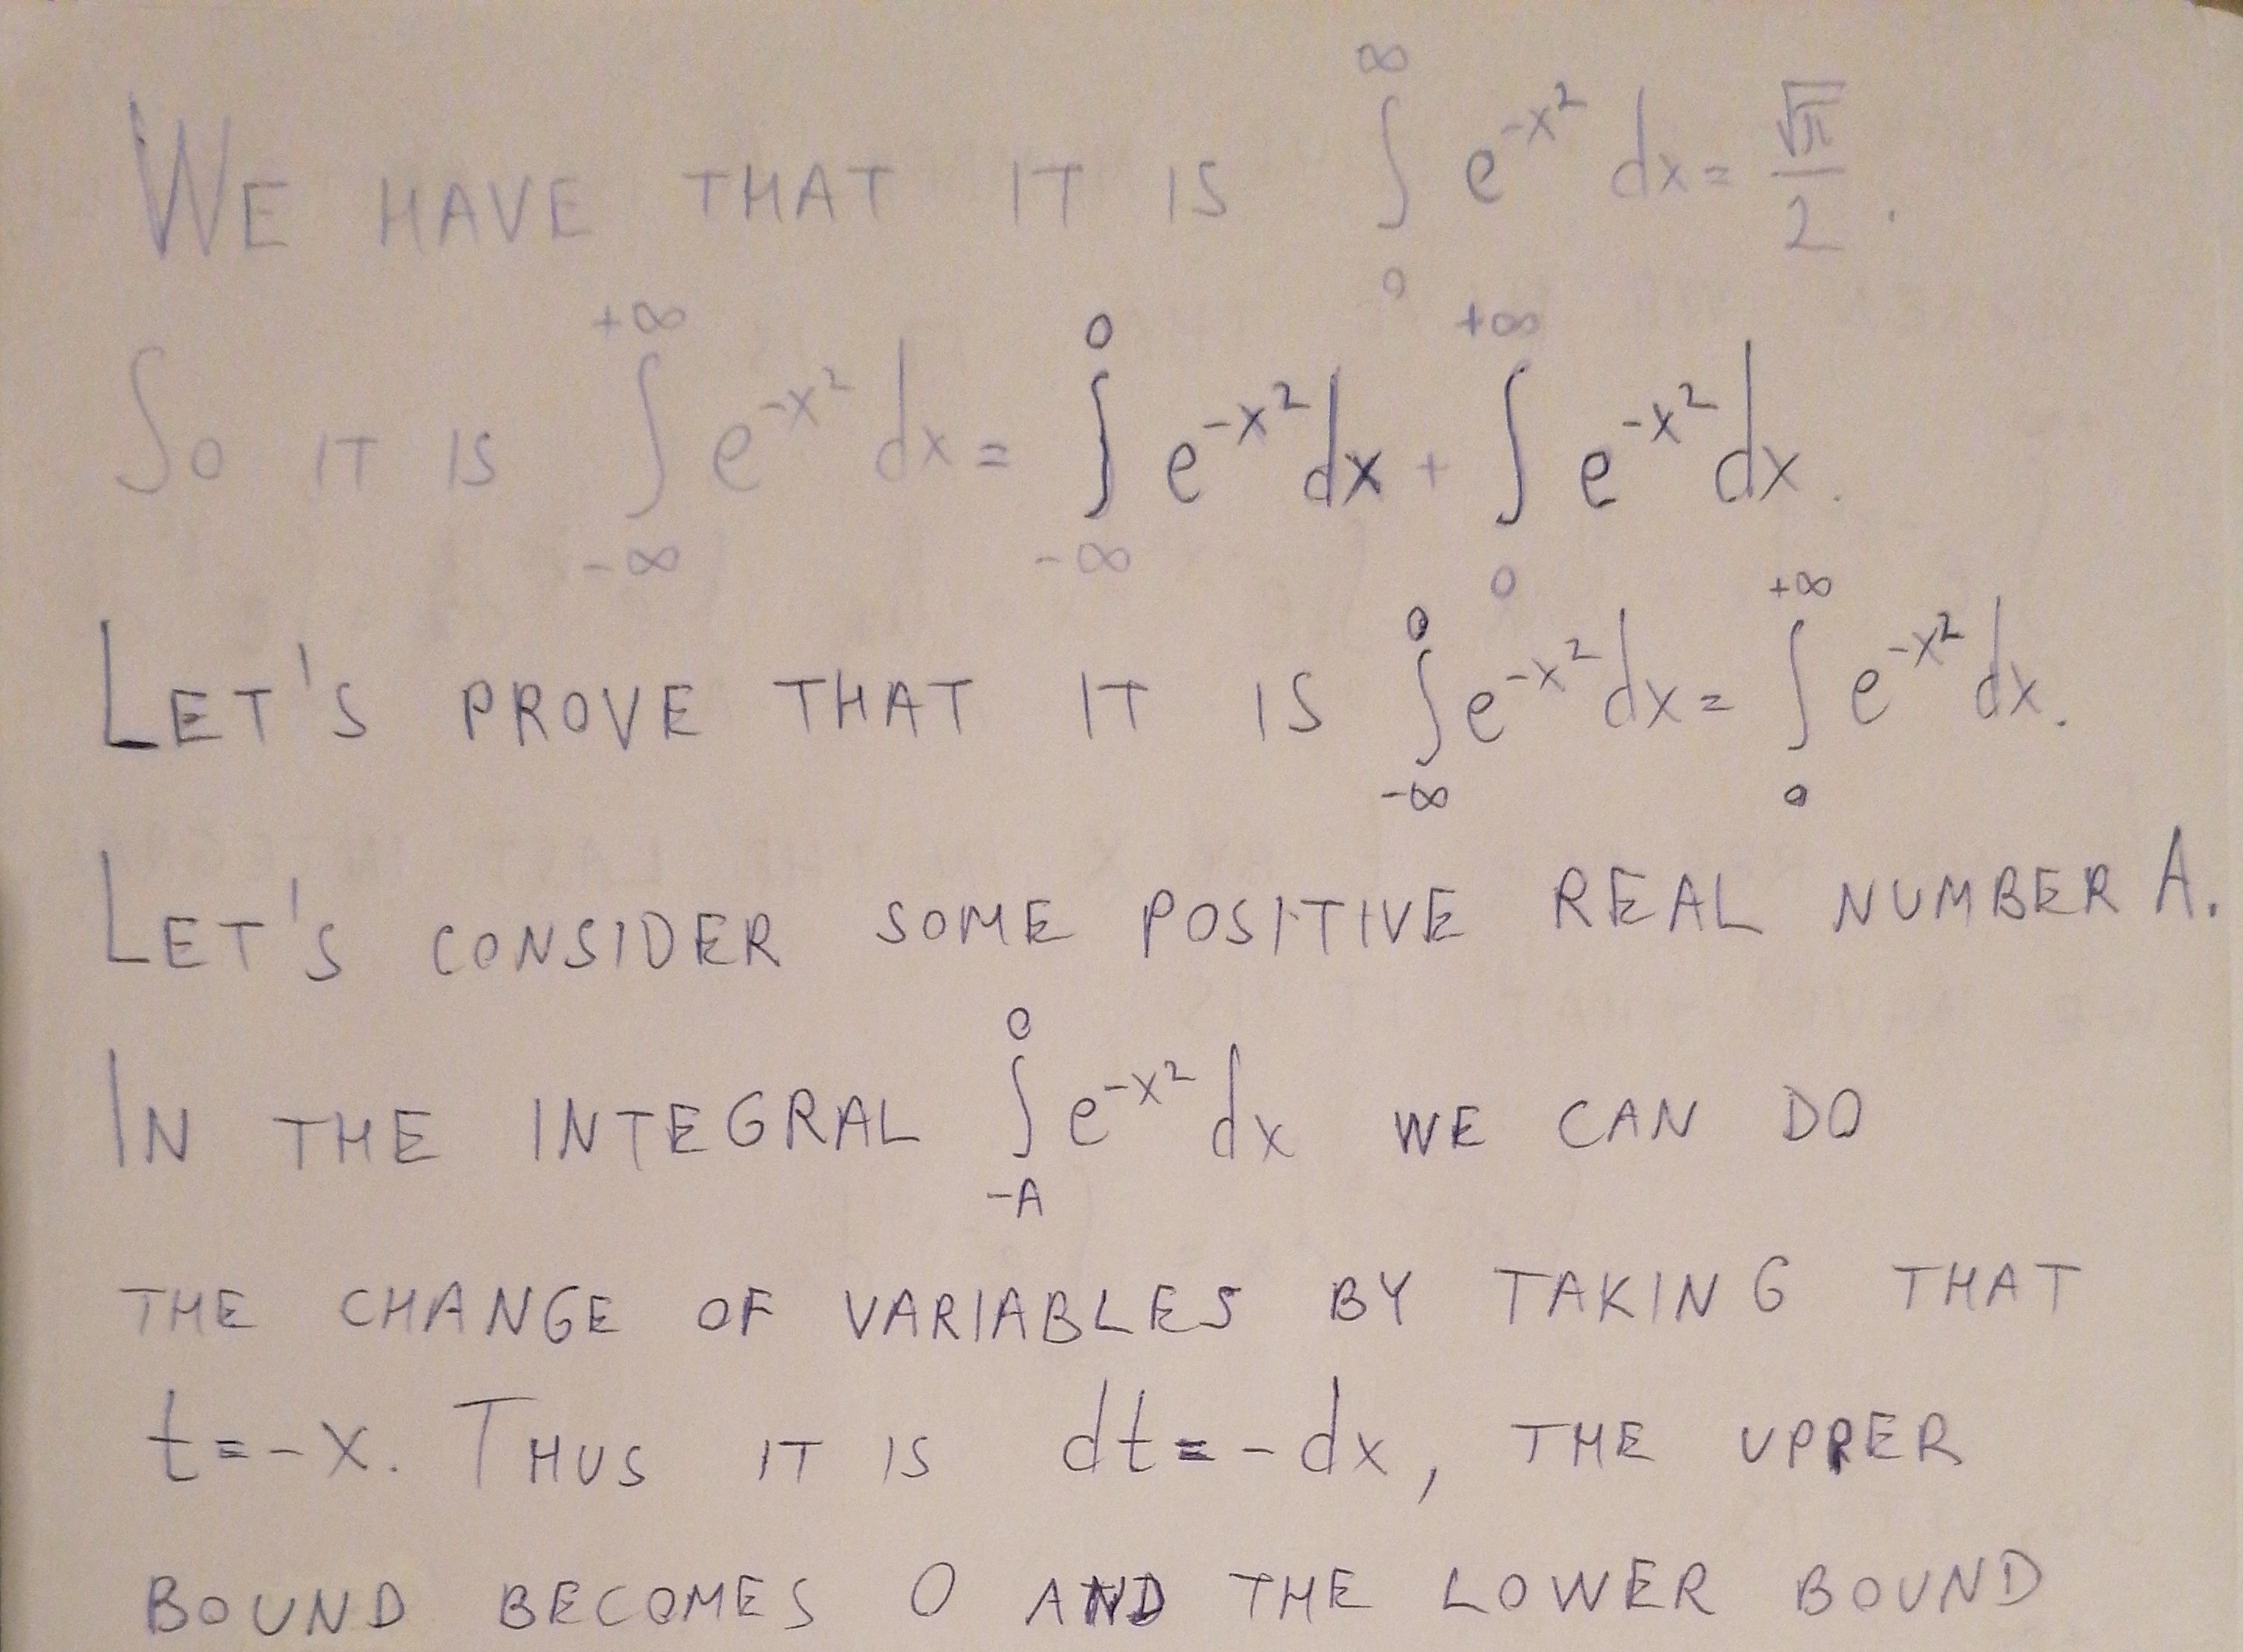 WE HAVE THAT IT IS ∫₀^∞ e^{-x²} dx = √π/2.
SO IT IS ∫_{-∞}^{+∞} e^{-x²} dx = ∫_{-∞}^{0} e^{-x²} dx + ∫_{0}^{+∞} e^{-x²} dx.
LET'S PROVE THAT IT IS ∫_{-∞}^{0} e^{-x²} dx = ∫_{0}^{+∞} e^{-x²} dx.
LET'S CONSIDER SOME POSITIVE REAL NUMBER A.
IN THE INTEGRAL ∫_{-A}^{0} e^{-x²} dx WE CAN DO
THE CHANGE OF VARIABLES BY TAKING THAT
t=-x. THUS IT IS dt=-dx, THE UPPER
BOUND BECOMES 0 AND THE LOWER BOUND